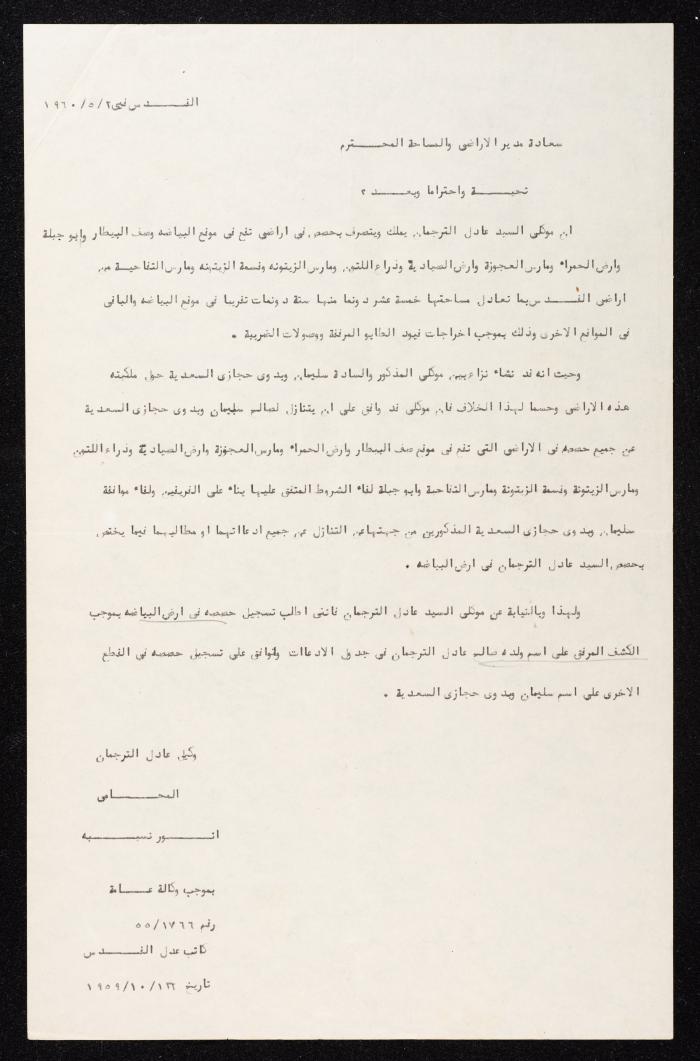 القـــدس في ٢/٥/١٩٦٠
سعادة مدير الاراضي والمساحة المحـــترم
تحيـــة واحتراما وبعـــد ؟
ان موكلي السيد عادل الترجمان يملك ويتصرف بحصص في اراضي تقع في موقع البياضه وصف البيطار وابو جبلة
وارض الحمراء ومارس العجوزة وارض الصيادية وذراع اللتون ومارس الزيتونه وقسمة الزيتونه ومارس التفاحيـة من
اراضي القـــدس بما تعادل مساحتها خمسة عشر دونما منها ستة دونمات تقريبا في موقع البياضه والباقي
في المواقع الاخرى وذلك بموجب اخراجات قيود الطابو المرفقة ووصولات الضريبة .
وحيث انه قد نشاء نزاع بين موكلي المذكور والسادة سليمان وبدوى حجازى السعدية حول ملكيته
هذه الاراضي وحسما لهذا الخلاف فان موكلي قد وافق على ان يتنازل لصالح سليمان وبدوى حجازى السعدية
عن جميع حصصه في الاراضي التي تقع في موقع صف البيطار وارض الحمراء ومارس العجوزة وارض الصيادية وذراع اللتون
ومارس الزيتونة وقسمة الزيتونة ومارس التفاحية وابو جبلة لقاء الشروط المتفق عليها بناء على الفريقين ولقاء موافقة
سليمان وبدوى حجازى السعدية المذكورين من جهتهما عن التنازل عن جميع ادعاآتهما او مطاليبهما فيما يختص
بحصص السيد عادل الترجمان في ارض البياضه .
ولهذا وبالنيابة عن موكلي السيد عادل الترجمان فانني اطلب تسجيل حصصه في ارض البياضه بموجب
الكشف المرفق على اسم ولده صالح عادل الترجمان في جدول الادعاآت واوافق على تسجيل حصصه في القطع
الاخرى على اسم سليمان وبدوى حجازى السعدية .
وكيل عادل الترجمان
المحـــامي
انـــور نسيبـــه
بموجب وكالة عـــامة
رقم ٥٥/١٧٦٦
كاتب عدل القـــدس
تاريخ